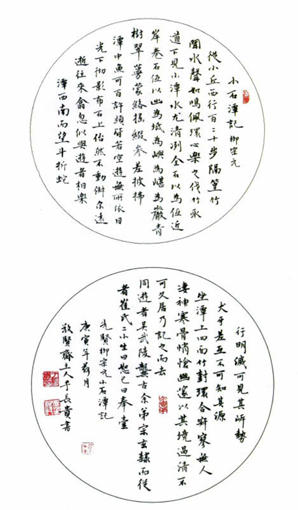 小石潭記 柳宗元
從小丘西行百二十步隔篁竹
聞水聲如鳴佩環心樂之伐竹取
道下見小潭水尤清冽全石以為底近
岸卷石底以出為坻為嶼為嵁為巖青
樹翠蔓蒙絡搖綴參差披拂
潭中魚可百許頭皆若空遊無所依日
光下徹影布石上佁然不動俶爾遠
逝往來翕忽似與遊者相樂
潭西南而望斗折蛇
行明滅可見其岸勢
犬牙差互不可知其源
坐潭上四面竹樹環合寂寥無人
淒神寒骨悄愴幽邃以其境過清不
可久居乃記之而去
同遊者吳武陵龔古余弟宗玄隸而從
者崔氏二小生曰恕己曰奉壹
先賢柳宗元小石潭記
庚寅年月
齋主人書